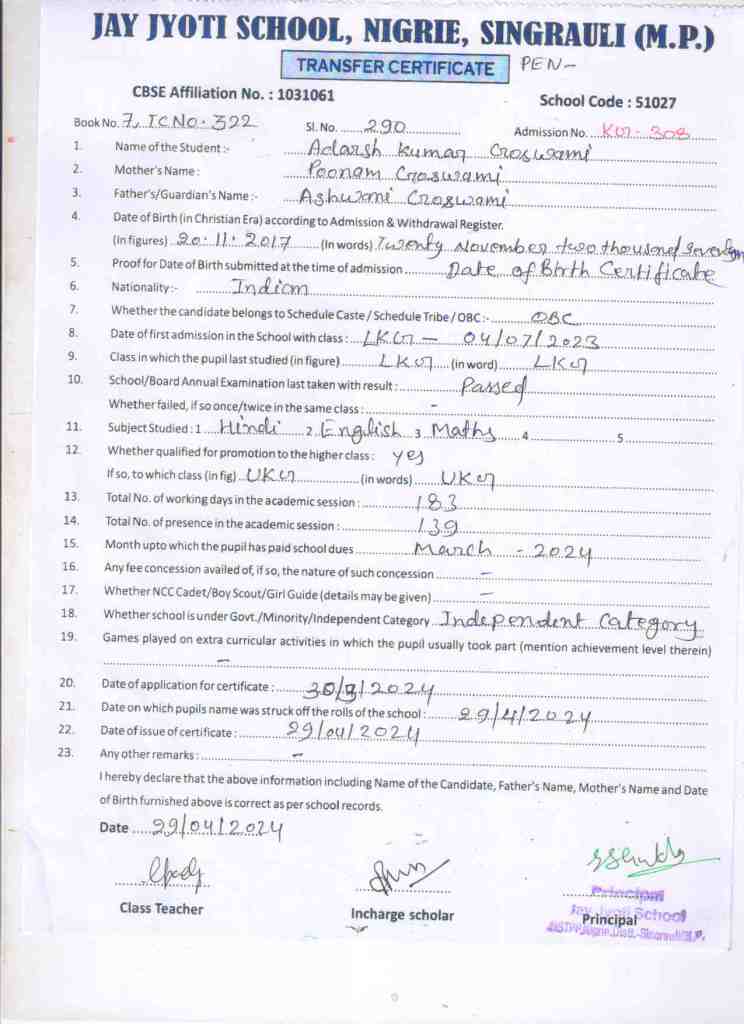 JAY JYOTI SCHOOL, NIGRIE, SINGRAULI (M.P.)
TRANSFER CERTIFICATE PEN-
CBSE Affiliation No. : 1031061
School Code : 51027
Book No. 7, TC NO. 322 Sl. No. 290 Admission No. KG - 308
1. Name of the Student :- Adarsh Kumar Goswami
2. Mother's Name : Poonam Goswami
3. Father's/Guardian's Name :- Ashwani Goswami
4. Date of Birth (in Christian Era) according to Admission & Withdrawal Register.
(In figures) 20.11.2017 (In words) Twenty November two thousand Seventeen
5. Proof for Date of Birth submitted at the time of admission Date of Birth Certificate
6. Nationality:- Indian
7. Whether the candidate belongs to Schedule Caste / Schedule Tribe / OBC :- OBC
8. Date of first admission in the School with class : LKG - 04/07/2023
9. Class in which the pupil last studied (in figure) LKG (in word) LKG
10. School/Board Annual Examination last taken with result : Passed
Whether failed, if so once/twice in the same class : -
11. Subject Studied : 1 Hindi 2 English 3 Maths 4 5
12. Whether qualified for promotion to the higher class : yes
If so, to which class (in fig) UKG (in words) UKG
13. Total No. of working days in the academic session : 183
14. Total No. of presence in the academic session : 139
15. Month upto which the pupil has paid school dues March - 2024
16. Any fee concession availed of, if so, the nature of such concession -
17. Whether NCC Cadet/Boy Scout/Girl Guide (details may be given) -
18. Whether school is under Govt./Minority/Independent Category Independent Category
19. Games played on extra curricular activities in which the pupil usually took part (mention achievement level therein)
-
20. Date of application for certificate : 30/3/2024
21. Date on which pupils name was struck off the rolls of the school : 29/4/2024
22. Date of issue of certificate : 29/04/2024
23. Any other remarks : -
I hereby declare that the above information including Name of the Candidate, Father's Name, Mother's Name and Date
of Birth furnished above is correct as per school records.
Date 29/04/2024
Class Teacher
Incharge scholar
Principal
Jay Jyoti School
Principal